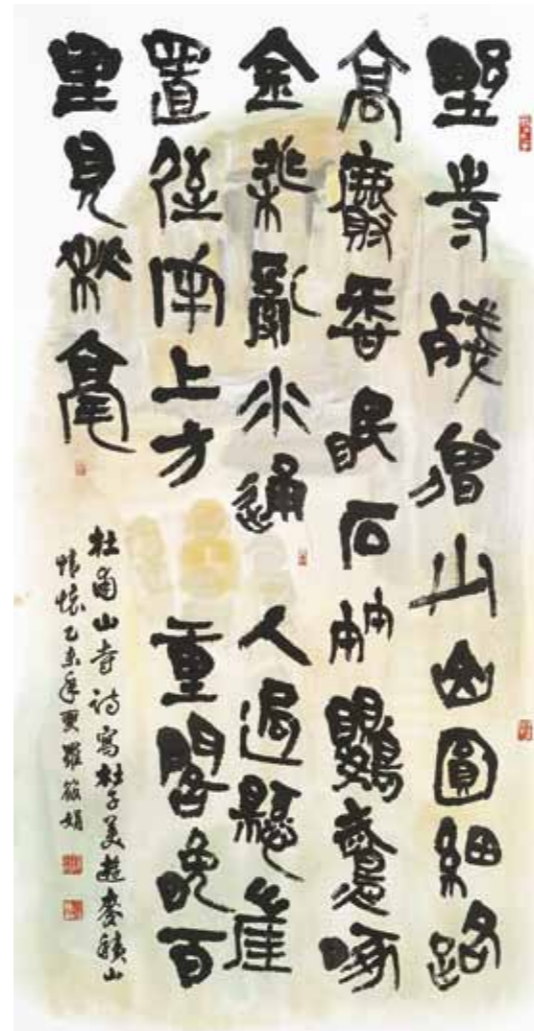 野寺殘僧少山園細路
高麝香眠石竹鸚鵡啄
金桃亂水通人過懸崖
置屋牢上方重閣晚百
里見秋毫
杜甫山寺詩寫杜子美遊麥積山
情懷乙未年夏羅筱娟